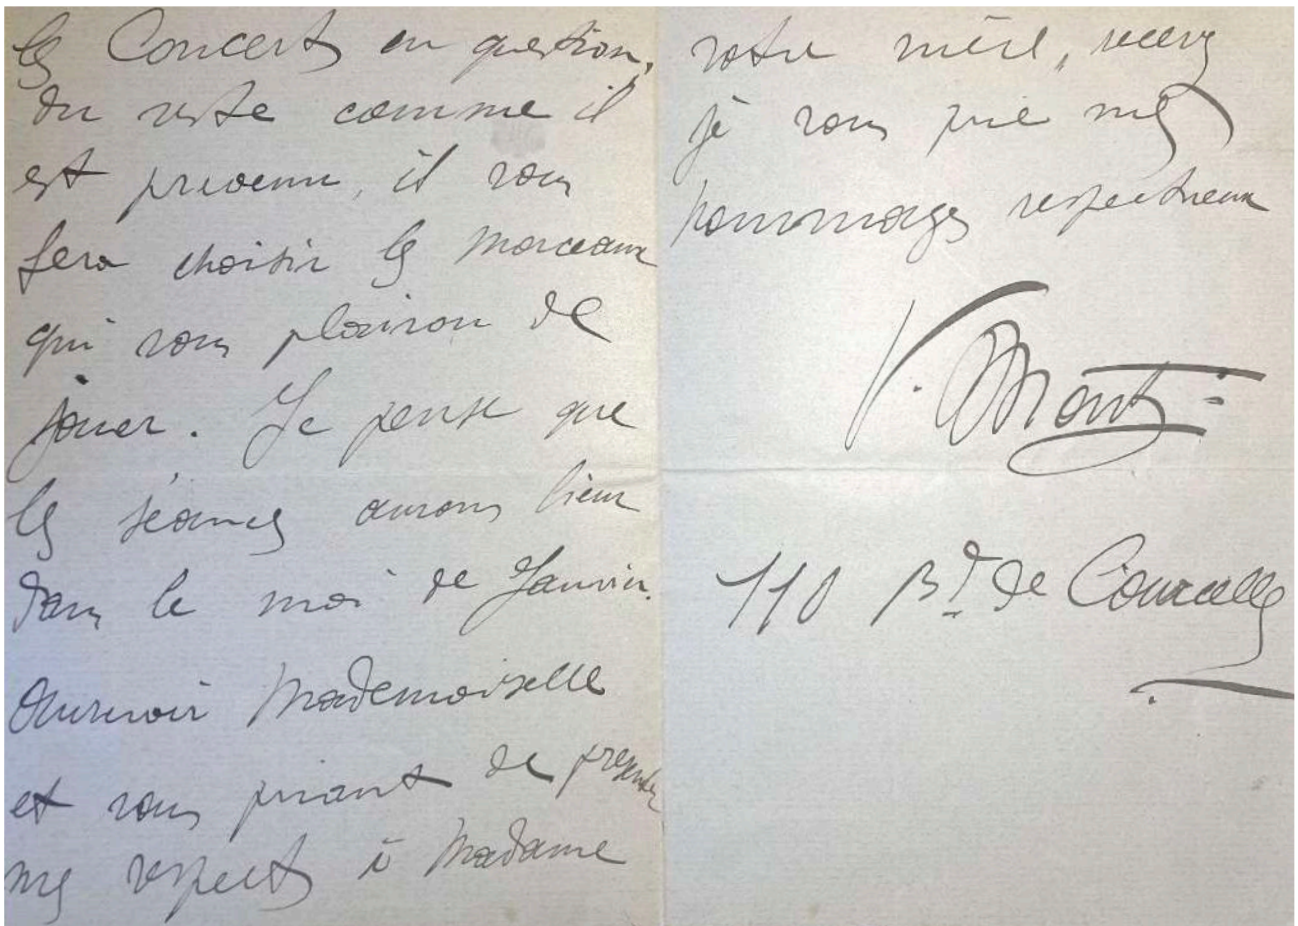 les Concerts en question,
du reste comme il
est prevenu, il vous
fera choisir les morceaux
qui vous plairon de
jouer. Je pense que
les séances aurons lieux
dans le moi de Janvier.
Aurevoir Mademoiselle
et vous priant de presenter
mes respects à Madame
votre mère, recevez
je vous prie mes
hommages respectueux
V. Monti
110 Bd de Courcelles